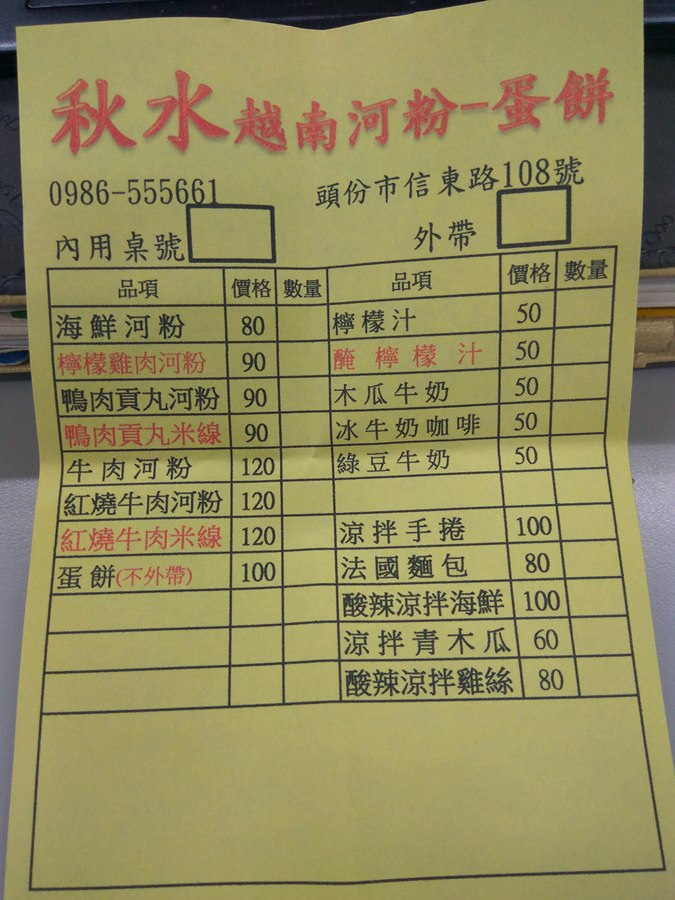 秋水越南河粉-蛋餅
0986-555661 頭份市信東路108號
內用桌號 外帶
品項 價格 數量 品項 價格 數量
海鮮河粉 80 檸檬汁 50
檸檬雞肉河粉 90 醃檸檬汁 50
鴨肉貢丸河粉 90 木瓜牛奶 50
鴨肉貢丸米線 90 冰牛奶咖啡 50
牛肉河粉 120 綠豆牛奶 50
紅燒牛肉河粉 120
紅燒牛肉米線 120 涼拌手捲 100
蛋餅(不外帶) 100 法國麵包 80
酸辣涼拌海鮮 100
涼拌青木瓜 60
酸辣涼拌雞絲 80